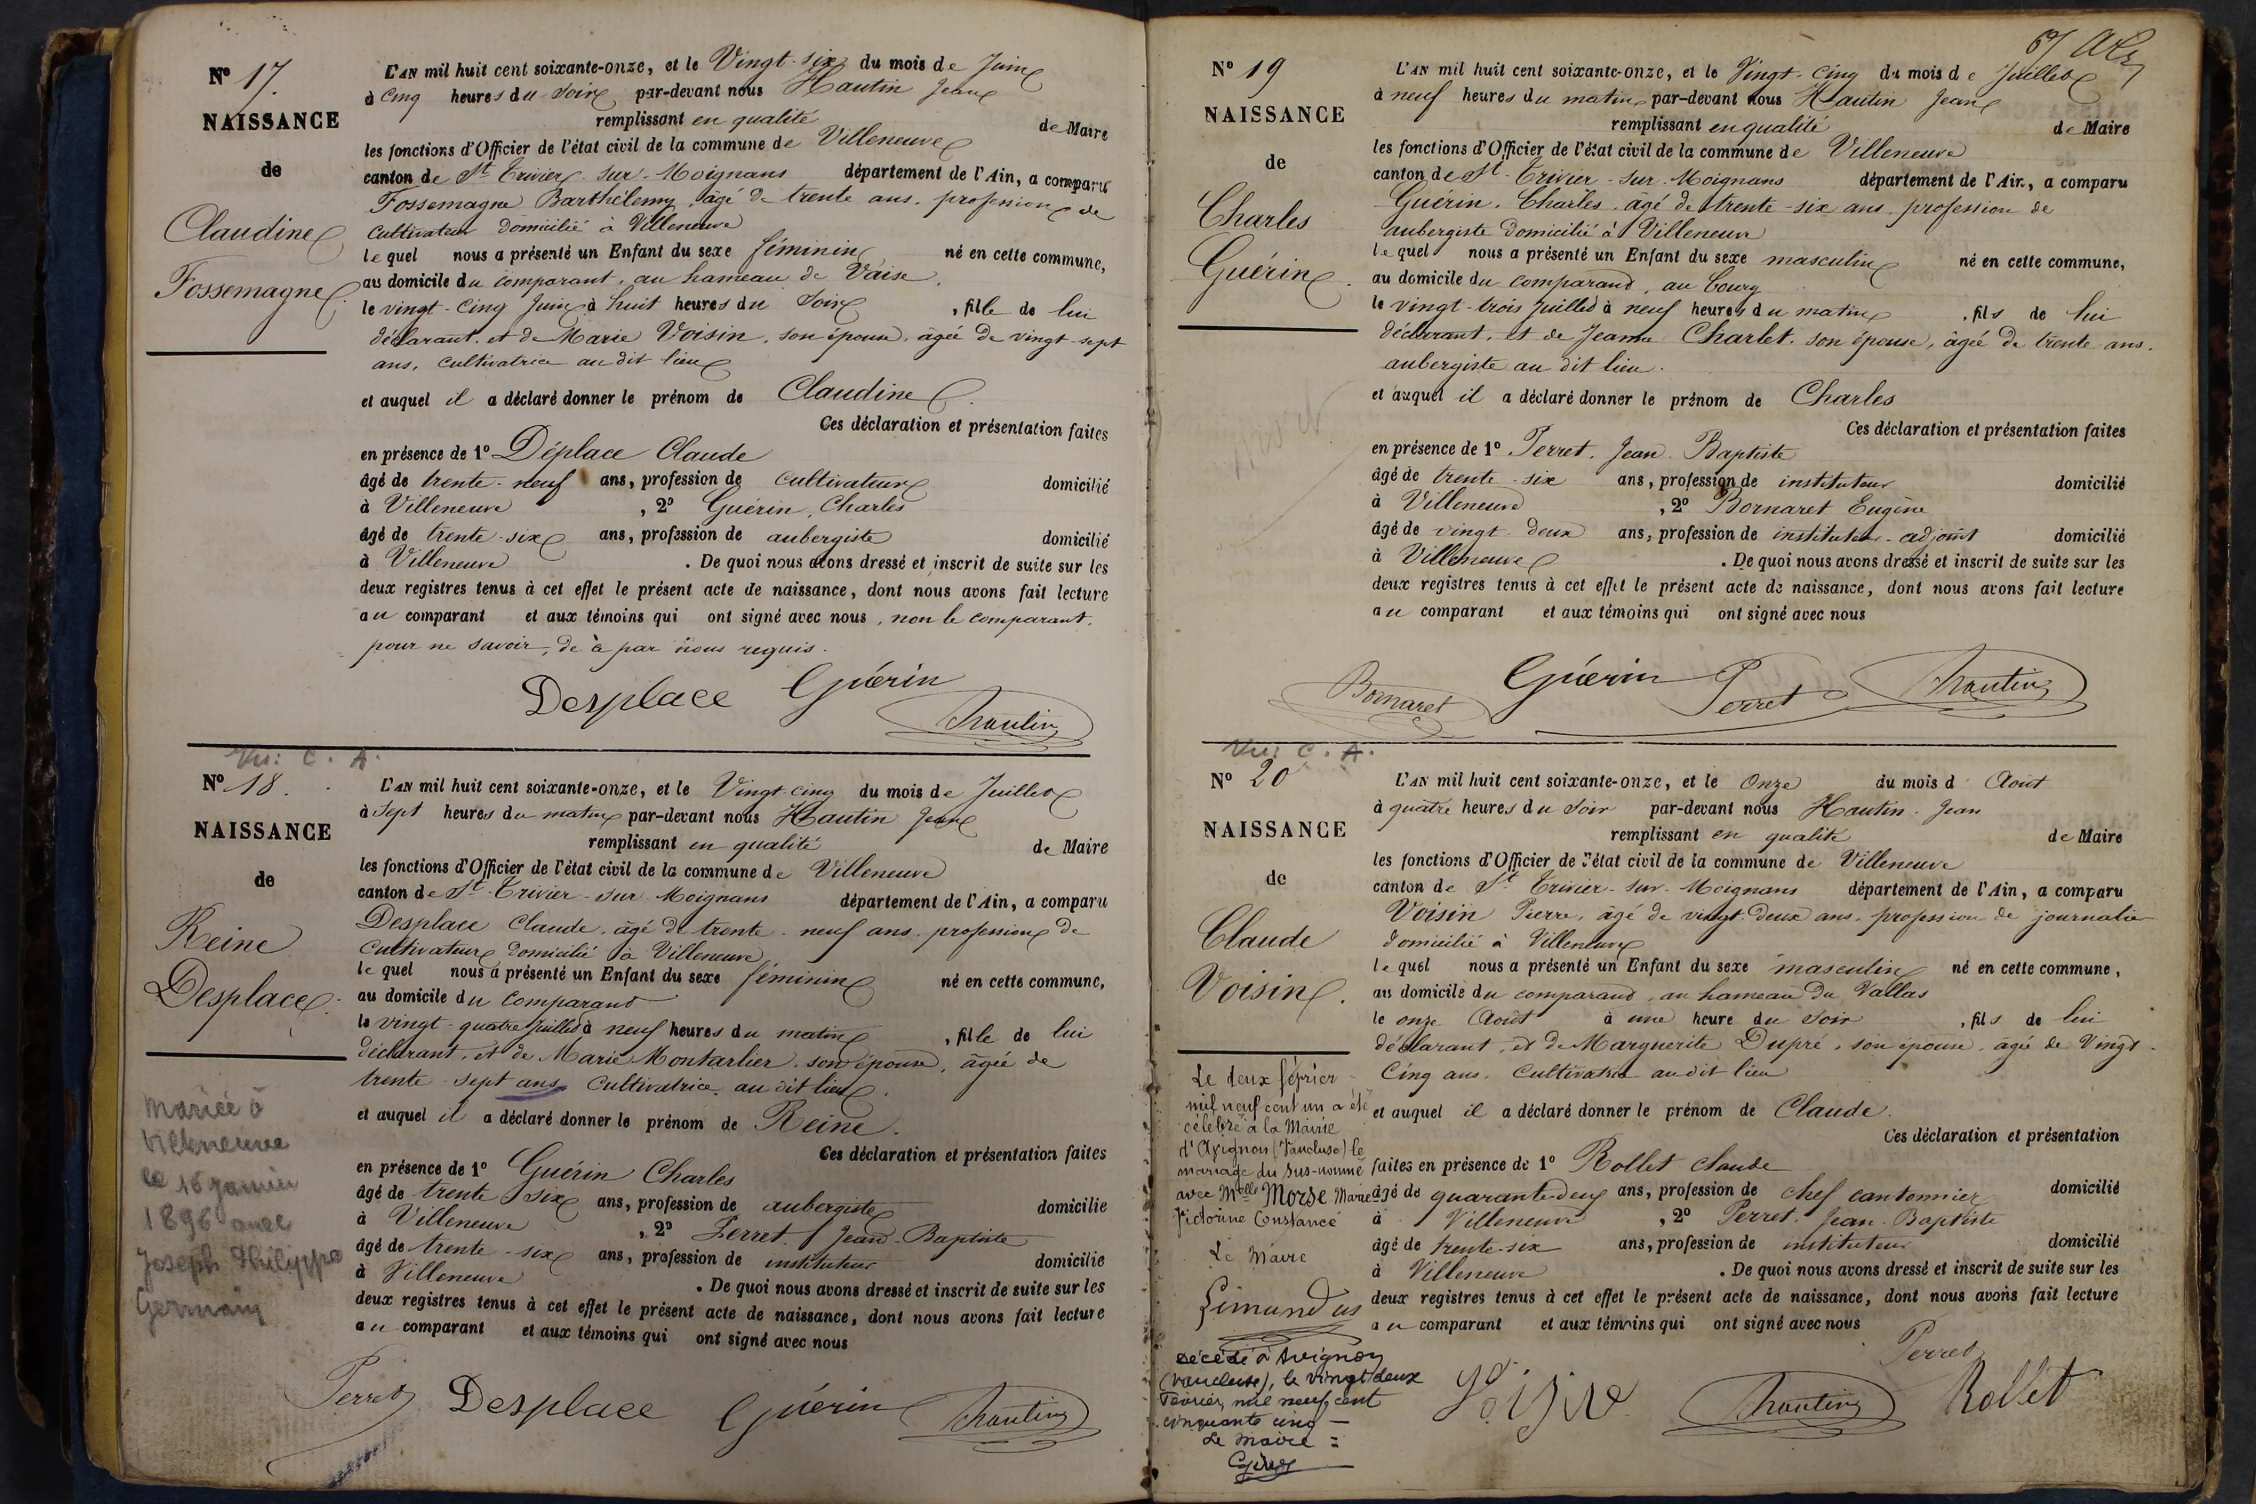 Nº 17.
NAISSANCE
de
Claudine
Fossemagne.
L'AN mil huit cent soixante-onze, et le Vingt-six du mois de Juin
à cinq heures du soir par-devant nous Hautin Jean
remplissant en qualité de Maire
les fonctions d'Officier de l'état civil de la commune de Villeneuve
canton de St Trivier-sur-Moignans département de l'Ain, a comparu
Fossemagne Barthélemy âgé de trente ans, profession de
cultivateur domicilié à Villeneuve
lequel nous a présenté un Enfant du sexe féminin né en cette commune,
au domicile du comparant, au hameau de Vaise,
le vingt-cinq Juin à huit heures du soir, fille de lui
déclarant, et de Marie Voisin, son épouse, âgée de vingt-sept
ans, cultivatrice au dit lieu
et auquel il a déclaré donner le prénom de Claudine.
Ces déclaration et présentation faites
en présence de 1º Déplace Claude
âgé de trente-neuf ans, profession de cultivateur domicilié
à Villeneuve, 2º Guérin, Charles
âgé de trente-six ans, profession de aubergiste domicilié
à Villeneuve. De quoi nous avons dressé et inscrit de suite sur les
deux registres tenus à cet effet le présent acte de naissance, dont nous avons fait lecture
au comparant et aux témoins qui ont signé avec nous, non le comparant,
pour ne savoir, de ce par nous requis.
Desplace Guérin
Hautin
Vu: C. A.
Nº 18.
NAISSANCE
de
Reine
Desplace.
Mariée à
Villeneuve
le 16 janvier
1896 avec
Joseph Philippe
Germain
L'AN mil huit cent soixante-onze, et le Vingt-cinq du mois de Juillet
à sept heures du matin par-devant nous Hautin Jean
remplissant en qualité de Maire
les fonctions d'Officier de l'état civil de la commune de Villeneuve
canton de St Trivier-sur-Moignans département de l'Ain, a comparu
Desplace Claude, âgé de trente-neuf ans, profession de
cultivateur domicilié à Villeneuve
lequel nous a présenté un Enfant du sexe féminin né en cette commune,
au domicile du comparant
le vingt-quatre Juillet à neuf heures du matin, fille de lui
déclarant, et de Marie Montarlier, son épouse, âgée de
trente-sept ans, cultivatrice au dit lieu.
et auquel il a déclaré donner le prénom de Reine.
Ces déclaration et présentation faites
en présence de 1º Guérin Charles
âgé de trente six ans, profession de aubergiste domicilié
à Villeneuve, 2º Perret Jean-Baptiste
âgé de trente-six ans, profession de instituteur domicilié
à Villeneuve. De quoi nous avons dressé et inscrit de suite sur les
deux registres tenus à cet effet le présent acte de naissance, dont nous avons fait lecture
au comparant et aux témoins qui ont signé avec nous
Perret Desplace Guérin Hautin
Nº 19
NAISSANCE
de
Charles
Guérin.
L'AN mil huit cent soixante-onze, et le Vingt-cinq du mois de Juillet
à neuf heures du matin par-devant nous Hautin Jean
remplissant en qualité de Maire
les fonctions d'Officier de l'état civil de la commune de Villeneuve
canton de St Trivier-sur-Moignans département de l'Ain, a comparu
Guérin, Charles, âgé de trente-six ans, profession de
aubergiste domicilié à Villeneuve
lequel nous a présenté un Enfant du sexe masculin né en cette commune,
au domicile du comparant, au bourg
le vingt-trois Juillet à neuf heures du matin, fils de lui
déclarant, et de Jeanne Charlet, son épouse, âgée de trente ans,
aubergiste au dit lieu.
et auquel il a déclaré donner le prénom de Charles
Ces déclaration et présentation faites
en présence de 1º Perret, Jean-Baptiste
âgé de trente-six ans, profession de instituteur domicilié
à Villeneuve, 2º Bornaret Eugène
âgé de vingt-deux ans, profession de instituteur-adjoint domicilié
à Villeneuve. De quoi nous avons dressé et inscrit de suite sur les
deux registres tenus à cet effet le présent acte de naissance, dont nous avons fait lecture
au comparant et aux témoins qui ont signé avec nous
Bornaret Guérin Perret Hautin
Vu: C. A.
Nº 20
NAISSANCE
de
Claude
Voisin.
Le deux février
mil neuf cent un a été
célébré à la Mairie
d'Avignon (Vaucluse) le
mariage du sus-nommé
avec Melle Morse Marie
Victorine Constance
Le Maire
Limandas
Décédé à Avignon
(Vaucluse), le vingt deux
Février mil neuf cent
cinquante cinq
Le Maire =
L'AN mil huit cent soixante-onze, et le Onze du mois d'Août
à quatre heures du soir par-devant nous Hautin Jean
remplissant en qualité de Maire
les fonctions d'Officier de l'état civil de la commune de Villeneuve
canton de St Trivier-sur-Moignans département de l'Ain, a comparu
Voisin Pierre, âgé de vingt-deux ans, profession de journalier
domicilié à Villeneuve
lequel nous a présenté un Enfant du sexe masculin né en cette commune,
au domicile du comparant, au hameau du Vallas
le onze Août à une heure du soir, fils de lui
déclarant, et de Marguerite Dupré, son épouse, âgée de Vingt-
cinq ans, cultivatrice au dit lieu
et auquel il a déclaré donner le prénom de Claude.
Ces déclaration et présentation
faites en présence de 1º Rollet Claude
âgé de quarante-deux ans, profession de chef cantonnier domicilié
à Villeneuve, 2º Perret, Jean-Baptiste
âgé de trente-six ans, profession de instituteur domicilié
à Villeneuve. De quoi nous avons dressé et inscrit de suite sur les
deux registres tenus à cet effet le présent acte de naissance, dont nous avons fait lecture
au comparant et aux témoins qui ont signé avec nous
Perret
Hautin Rollet